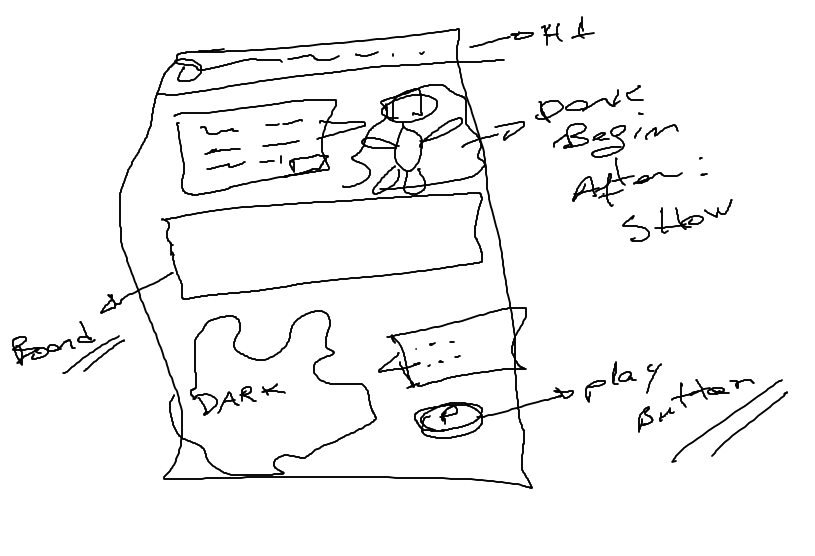 H1
Dark
Begin
After:
Show
Board
DARK
P
Play
Button